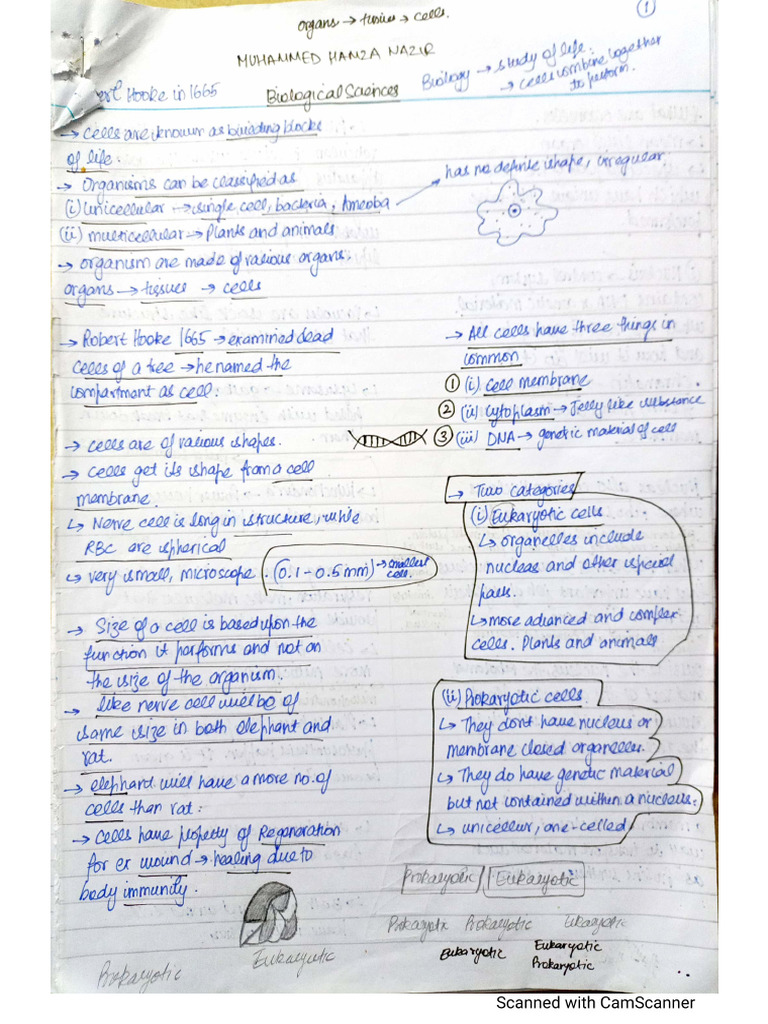 organs → tissues → cells.
1
MUHAMMED HAMZA NAZIR
Biology → study of life:
→ cells combine together
to perform.
Hooke in 1665
Biological Sciences
→ cells are known as building blocks
of life
→ Organisms can be classified as
(i) unicellular → single cell, bacteria, Ameoba
has no definite shape, irregular
(ii) multicellular → Plants and animals
→ organism are made of various organs.
organs → tissues → cells
→ Robert Hooke 1665 → examined dead
cells of a tree → he named the
compartment as cell.
→ cells are of various shapes.
→ cells get its shape from a cell
membrane.
↳ Nerve cell is long in structure, while
RBC are spherical
↳ very small, microscope. (0.1 - 0.5 mm) → smallest
cell.
→ Size of a cell is based upon the
function it performs and not on
the size of the organism.
→ like nerve cell will be of
same size in both elephant and
rat.
→ elephand will have a more no. of
cells than rat.
→ Cells have property of Regeneration
for er wound → healing due to
body immunity.
→ All cells have three things in
common
1 (i) Cell membrane
2 (ii) Cytoplasm → Jelly like substance
3 (iii) DNA → genetic material of cell
→ Two categories
(i) Eukaryotic cells
↳ organelles include
nucleas and other special
pass.
↳ more advanced and complex
cells. Plants and animals
(ii) Prokaryotic cells
↳ They dont have nucleus or
membrane closed organelles.
↳ They do have genetic material
but not contained within a nucleus.
↳ unicellur, one-celled
Prokaryotic Eukaryotic
Prokaryotic Prokaryotic
Eukaryotic Eukaryotic
Prokaryotic
Prokaryotic Eukaryotic
Scanned with CamScanner